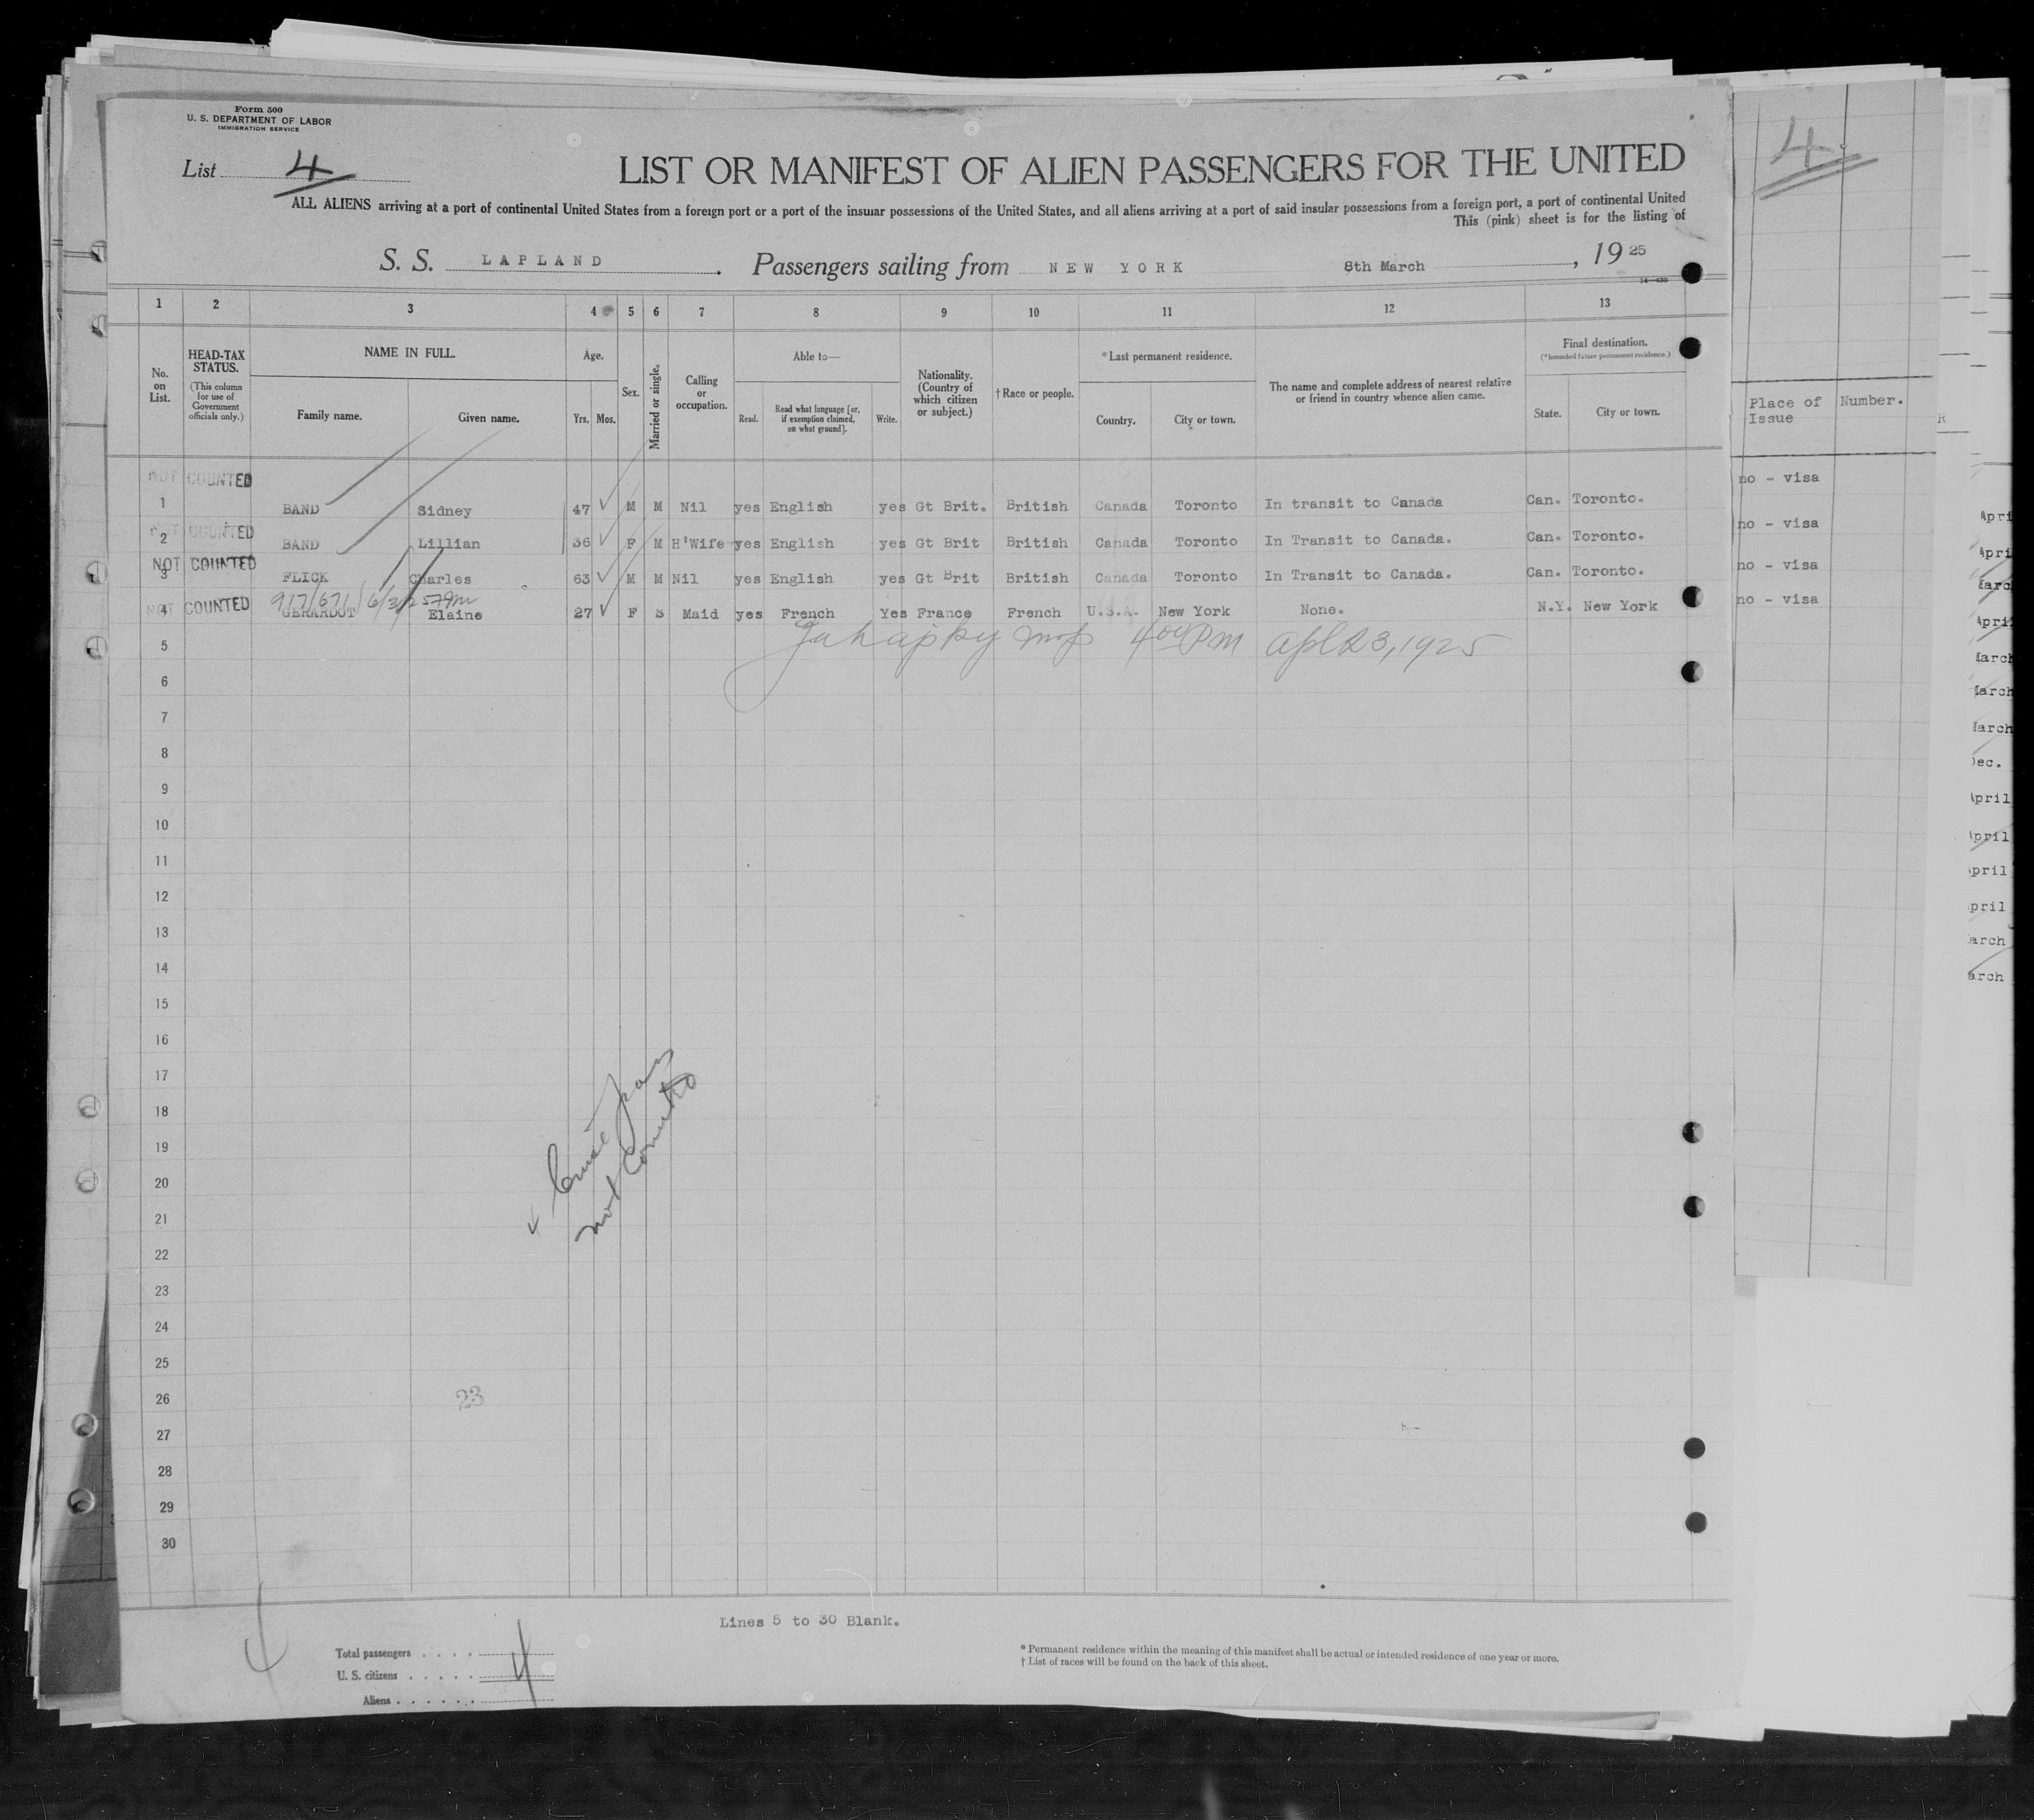 Form 500
U. S. DEPARTMENT OF LABOR
IMMIGRATION SERVICE
List 4
4
LIST OR MANIFEST OF ALIEN PASSENGERS FOR THE UNITED
ALL ALIENS arriving at a port of continental United States from a foreign port or a port of the insular possessions of the United States, and all aliens arriving at a port of said insular possessions from a foreign port, a port of continental United
This (pink) sheet is for the listing of
S. S. LAPLAND. Passengers sailing from NEW YORK 8th March, 1925
1 2 3 4 5 6 7 8 9 10 11 12 13
No. on List.
HEAD-TAX STATUS. (This column for use of Government officials only.)
NAME IN FULL.
Family name. Given name.
Age.
Yrs. Mos.
Sex.
Married or single.
Calling or occupation.
Able to—
Read. Read what language [or, if exemption claimed, on what ground]. Write.
Nationality. (Country of which citizen or subject.)
† Race or people.
*Last permanent residence.
Country. City or town.
The name and complete address of nearest relative or friend in country whence alien came.
Final destination.
(*Intended future permanent residence.)
State. City or town.
Place of Issue Number.
NOT COUNTED
1 BAND Sidney 47 M M Nil yes English yes Gt Brit. British Canada Toronto In transit to Canada Can. Toronto. no - visa
NOT COUNTED
2 BAND Lillian 36 F M H'Wife yes English yes Gt Brit British Canada Toronto In Transit to Canada. Can. Toronto. no - visa
NOT COUNTED
3 FLICK Charles 63 M M Nil yes English yes Gt Brit British Canada Toronto In Transit to Canada. Can. Toronto. no - visa
NOT COUNTED
4 GERARDOT Elaine 27 F S Maid yes French Yes France French U.S.A. New York None. N.Y. New York no - visa
5
400 PM Apl 23, 1925
6
7
8
9
10
11
12
13
14
15
16
17
18
19
20
21
22
23
24
25
26
27
28
29
30
not Counted
23
Lines 5 to 30 Blank.
Total passengers
U. S. citizens
Aliens
4
4
* Permanent residence within the meaning of this manifest shall be actual or intended residence of one year or more.
† List of races will be found on the back of this sheet.
April
March
March
March
April
April